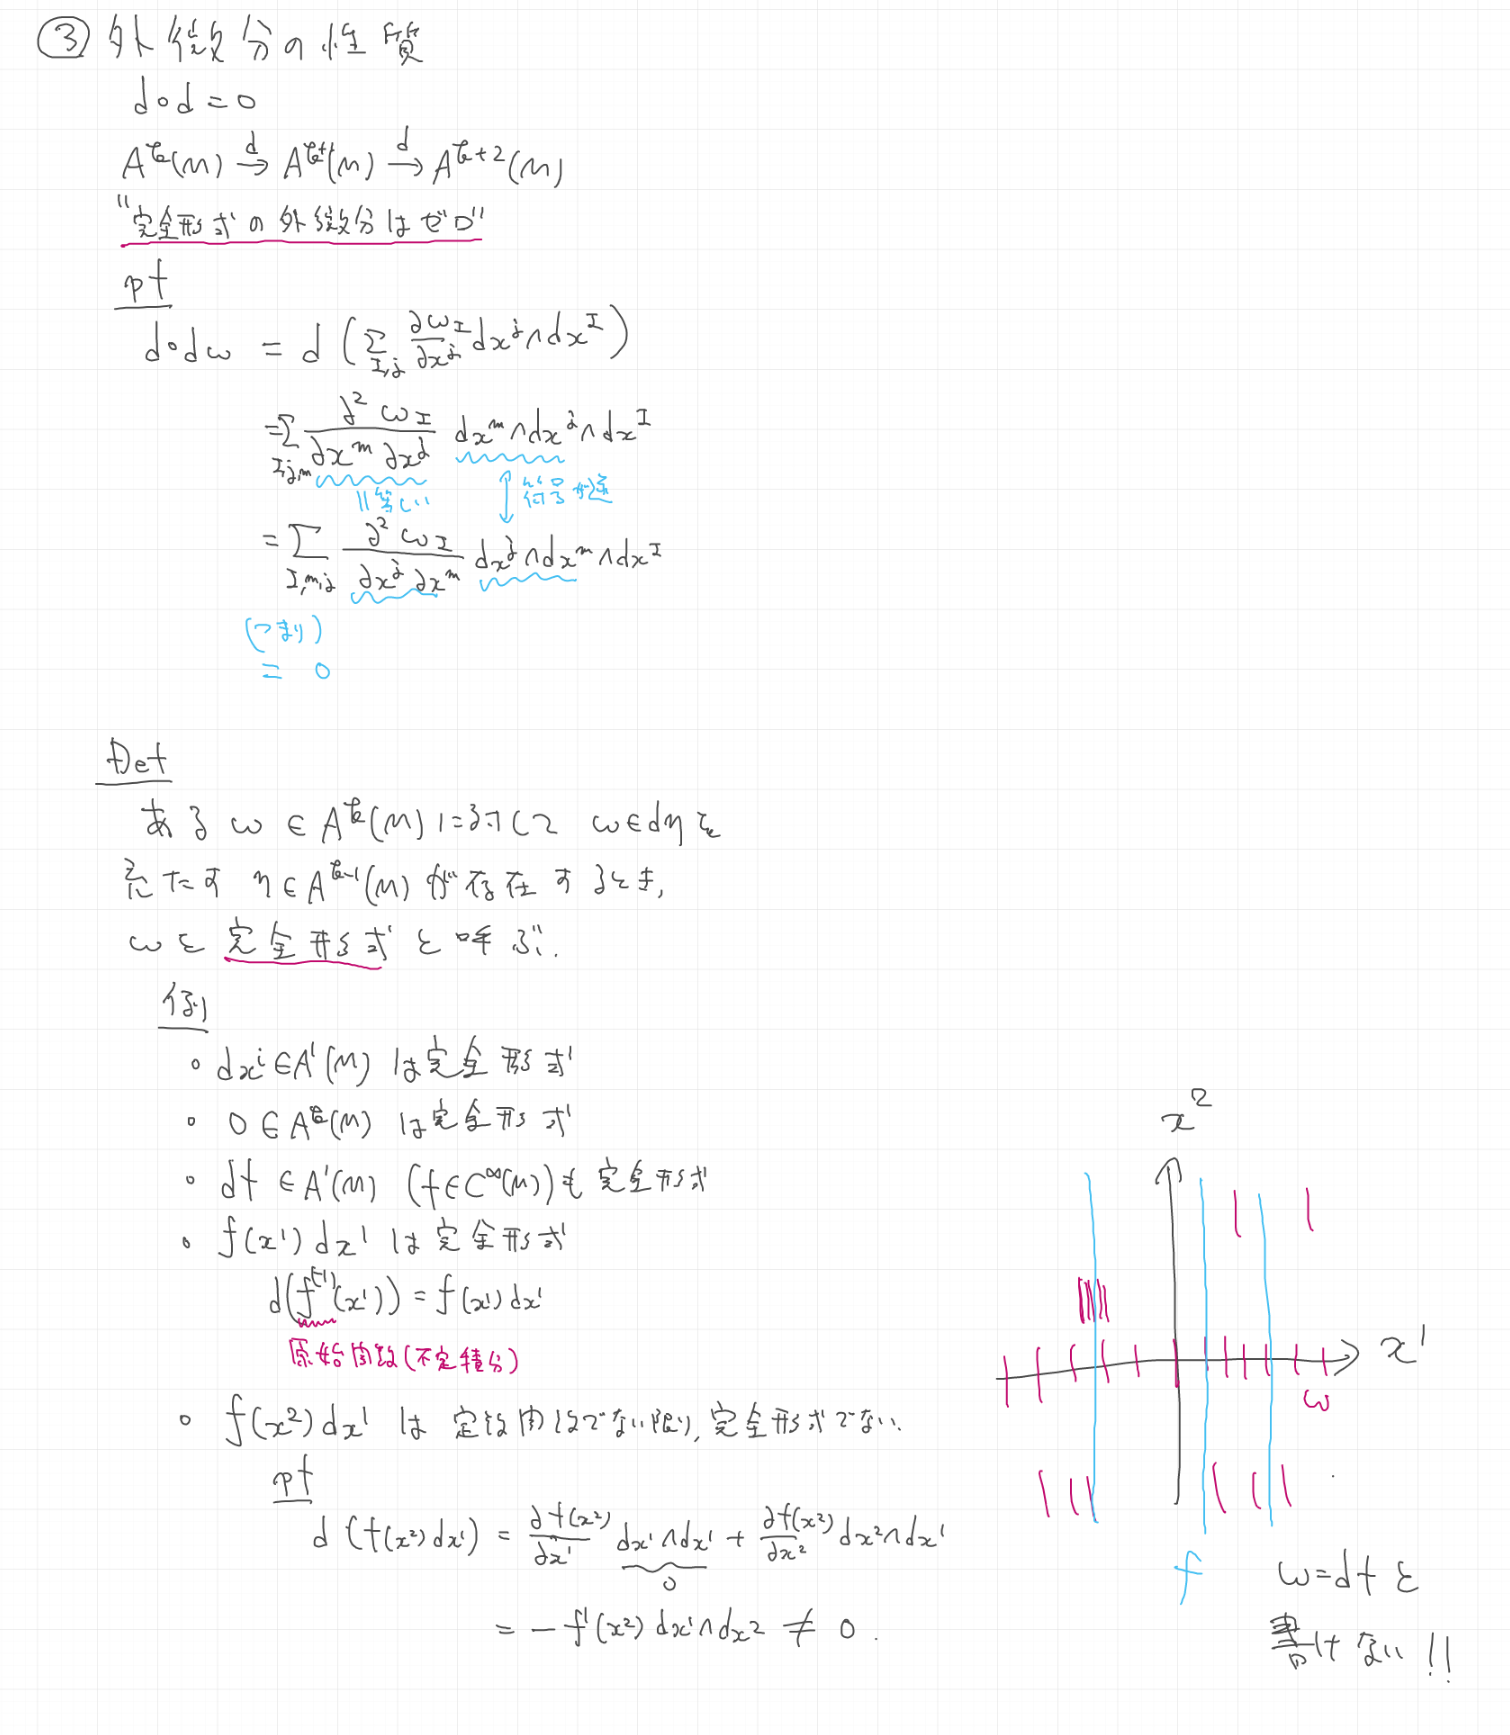 ③ 外微分の性質
d∘d = 0
A^k(M) →^d A^{k+1}(M) →^d A^{k+2}(M)
"完全形式の外微分はゼロ"
pf
d∘dω = d(Σ_{I,j} ∂ω_I/∂x^j dx^j∧dx^I)
= Σ_{I,j,m} ∂²ω_I/∂x^m ∂x^j dx^m∧dx^j∧dx^I
|| 等しい ↕ 符号が逆
= Σ_{I,m,j} ∂²ω_I/∂x^j ∂x^m dx^j∧dx^m∧dx^I
(つまり)
= 0
Def
ある ω ∈ A^k(M) に対して ω∈dη を
満たす η∈A^{k-1}(M) が存在するとき,
ωを 完全形式 と呼ぶ.
例
∘ dx^i ∈A^1(M) は完全形式
∘ 0 ∈ A^k(M) は完全形式
∘ df ∈ A^1(M) (f∈C^∞(M)) も 完全形式
∘ f(x^1) dx^1 は完全形式
d(f^{(-1)}(x^1)) = f(x^1) dx^1
原始関数(不定積分)
∘ f(x^2) dx^1 は 定数関数でない限り, 完全形式でない.
pf
d (f(x^2) dx^1) = ∂f(x^2)/∂x^1 dx^1∧dx^1 + ∂f(x^2)/∂x^2 dx^2∧dx^1
0
= -f'(x^2) dx^1∧dx^2 ≠ 0.
x^2
x^1
ω
f
ω=df と
書けない!!